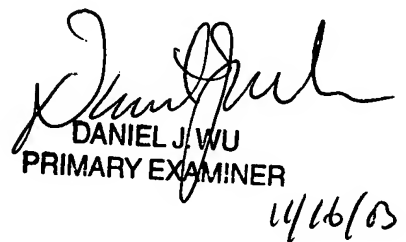 DANIEL J. WU
PRIMARY EXAMINER
11/16/03